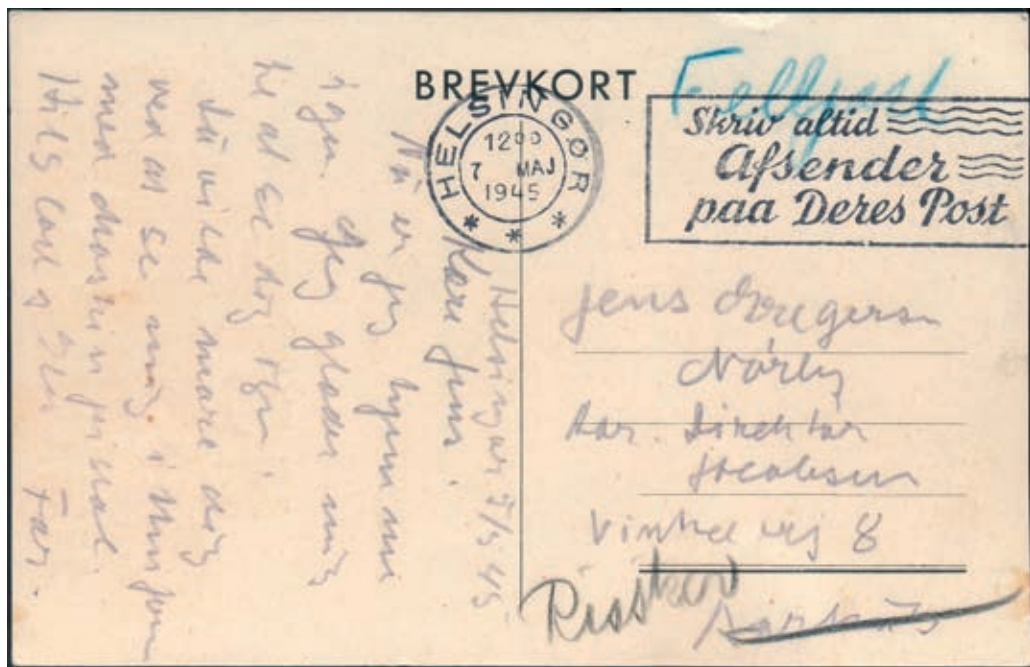 BREVKORT
Feltpost
HELSINGØR
1200
7 MAJ
1945
Skriv altid
Afsender
paa Deres Post
Helsingør 5/5 45
Kære Jens.
Nu er jeg hjemme
igen. Jeg glæder mig
til at se dig igen.
Du vilde more dig
ved at se mig i
med
Hils
Far.
Jens Gregersen
Nörby
Adr. Direktør
Jacobsen
Vinkelvej 8
Risskov
Aarhus